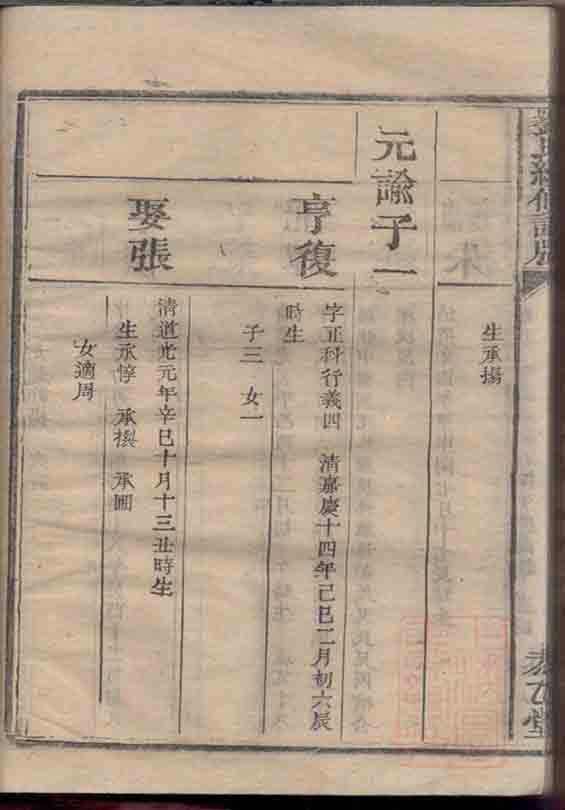 生承揚
元諭子一
亨復
字正科行義四 清嘉慶十四年己巳二月初六辰
時生
子三 女一
娶張
清道光元年辛巳十月十三丑時生
生承惇 承楔 承圃
女適周